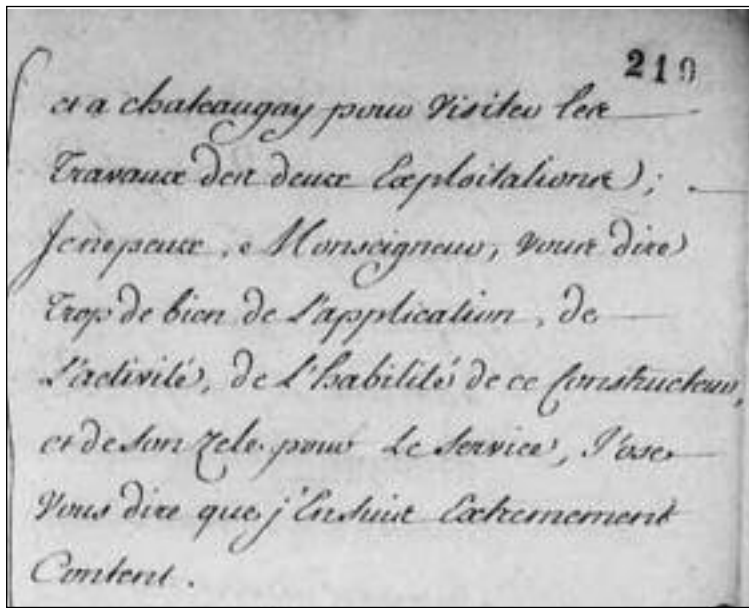 219
et a chateaugay pour visiter les
Travaux des deux Exploitations;
Je ne peux, Monseigneur, vous dire
Trop de bien de L'application, de
L'activité, de L'habilité de ce Constructeur,
et de son zele pour Le Service, J'ose
Vous dire que j'En suis Extremement
Content.